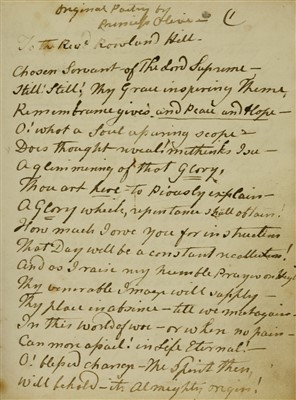 Original Poetry by
Princess Olive
To the Revd Rowland Hill.
Chosen Servant of The Lord Supreme
Still! Still! Thy Grace inspiring Theme,
Remembrance gives, and Peace and Hope
O! what a Soul aspiring scope
Does thought reveal! methinks I see
A glimmering of that Glory,
Thou art here to Piously explain
A Glory which, repentance shall obtain!
How much I owe You for instruction
That Day will be a constant recollection!
And as I raise my humble Prayer on high
Thy venerable Image will supply
Thy place in absence till we meet again
In this world of woe or when no pain
Can more assail! in Life Eternal!
O! blessed change the Spirit then,
Will behold it, Almighty origin!